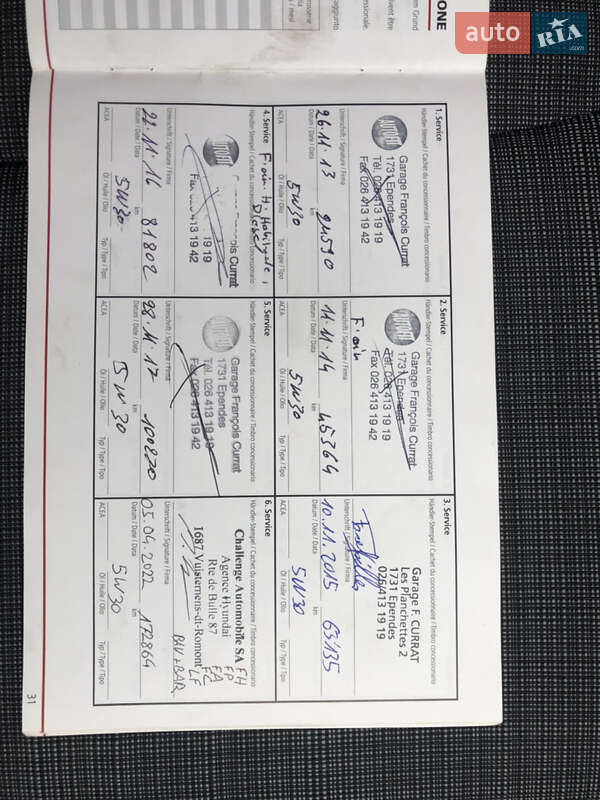 auto RIA .com
ONE
1. Service
Händler-Stempel / Cachet du concessionnaire / Timbro concessionario
Garage François Currat
1731 Ependes
Tél. 026 413 19 19
Fax 026 413 19 42
Unterschrift / Signature / Firma
26.11.13 21590
Datum / Date / Data km
5W30
ACEA Öl / Huile / Olio Typ / Type / Tipo
2. Service
Händler-Stempel / Cachet du concessionnaire / Timbro concessionario
Garage François Currat
1731 Ependes
Tél. 026 413 19 19
Fax 026 413 19 42
Unterschrift / Signature / Firma
11.11.14 45364
Datum / Date / Data km
5W30
ACEA Öl / Huile / Olio Typ / Type / Tipo
3. Service
Händler-Stempel / Cachet du concessionnaire / Timbro concessionario
Garage F. CURRAT
Les Planchettes 2
1731 Ependes
026/413 19 19
Unterschrift / Signature / Firma
10.11.2015 63135
Datum / Date / Data km
5W30
ACEA Öl / Huile / Olio Typ / Type / Tipo
4. Service
Händler-Stempel / Cachet du concessionnaire / Timbro concessionario
ois Currat
19 19
413 19 42
Unterschrift / Signature / Firma
22.11.16 81802
Datum / Date / Data km
5W30
ACEA Öl / Huile / Olio Typ / Type / Tipo
5. Service
Händler-Stempel / Cachet du concessionnaire / Timbro concessionario
Garage François Currat
1731 Ependes
Tél. 026 413 19 19
Fax 026 413 19 42
Unterschrift / Signature / Firma
28.11.17 100270
Datum / Date / Data km
5W30
ACEA Öl / Huile / Olio Typ / Type / Tipo
6. Service
Händler-Stempel / Cachet du concessionnaire / Timbro concessionario
Challenge Automobile SA FH
Agence Hyundai FP
Rte de Bulle 87 FA FC
1687 Vuisternens-dt-Romont LF
Unterschrift / Signature / Firma
05.04.2022 172864
Datum / Date / Data km
5W30
ACEA Öl / Huile / Olio Typ / Type / Tipo
31